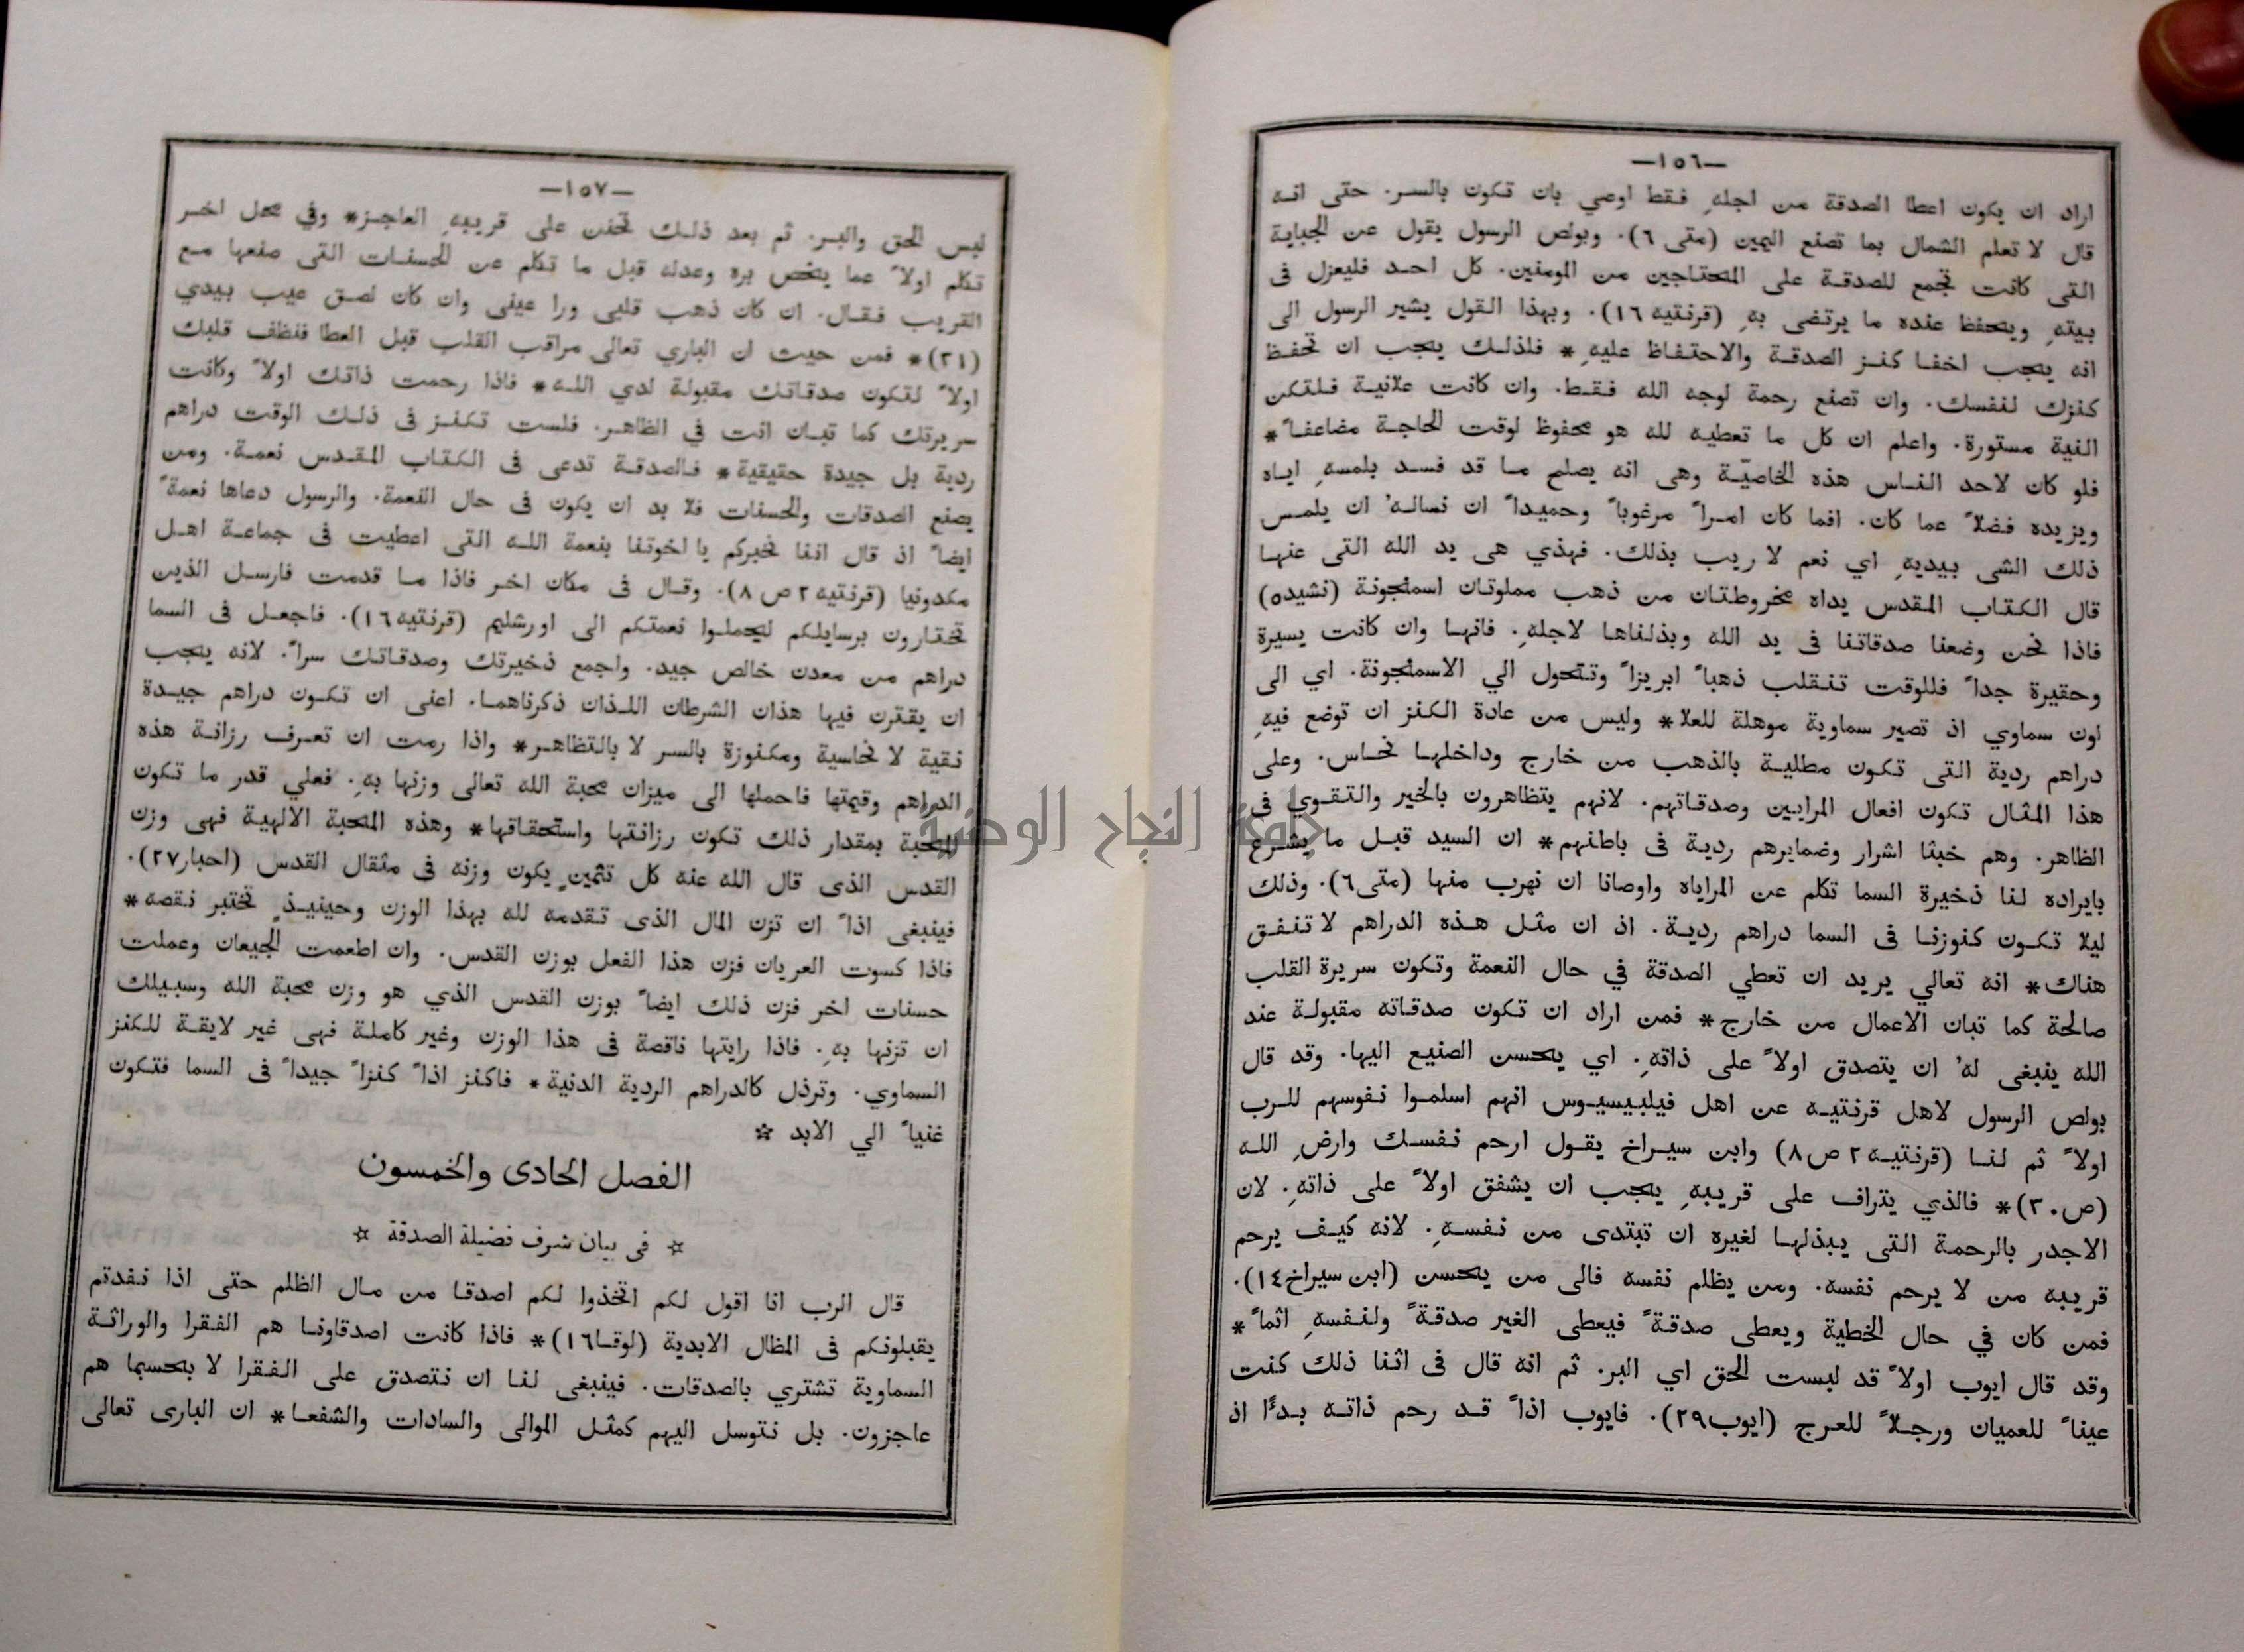 —١٥٦—
اراد ان يكون اعطا الصدقة من اجلهِ فقط اوصي بان تكون بالسر. حتى انه
قال لا تعلم الشمال بما تصنع اليمين (متى ٦). وبولص الرسول يقول عن الجباية
التى كانت تجمع للصدقة على المحتاجين من المومنين. كل احد فليعزل فى
بيتهِ ويحفظ عنده ما يرتضى بهِ (قرنتيه ١٦). وبهذا القول يشير الرسول الى
انه يجب اخفا كنز الصدقة والاحتفاظ عليهِ * فلذلك يجب ان تحفظ
كنزك لنفسك. وان تصنع رحمة لوجه الله فقط. وان كانت علانية فلتكن
النية مستورة. واعلم ان كل ما تعطيه لله هو محفوظ لوقت الحاجة مضاعفاً *
فلو كان لاحد الناس هذه الخاصيّة وهى انه يصلح ما قد فسد بلمسهِ اياه
ويزيده فضلاً عما كان. افما كان امراً مرغوباً وحميداً ان نسالهُ ان يلمس
ذلك الشى بيديهِ اي نعم لا ريب بذلك. فهذي هى يد الله التى عنها
قال الكتاب المقدس يداه مخروطتان من ذهب مملوتان اسمنجونة (نشيد٥)
فاذا نحن وضعنا صدقاتنا فى يد الله وبذلناها لاجلهِ. فانها وان كانت يسيرة
وحقيرة جداً فللوقت تنقلب ذهباً ابريزاً وتتحول الي الاسمنجونة. اي الى
لون سماوي اذ تصير سماوية موهلة للعلا* وليس من عادة الكنز ان توضع فيهِ
دراهم ردية التى تكون مطلية بالذهب من خارج وداخلها نحاس. وعلى
هذا المثال تكون افعال المرايين وصدقاتهم. لانهم يتظاهرون بالخير والتقوي فى
الظاهر. وهم خبثا اشرار وضمايرهم ردية فى باطنهم* ان السيد قبل ما يشرع
بايراده لنا ذخيرة السما تكلم عن المراياه واوصانا ان نهرب منها (متى٦). وذلك
ليلا تكون كنوزنا فى السما دراهم ردية. اذ ان مثل هذه الدراهم لا تنفق
هناك* انه تعالي يريد ان تعطي الصدقة في حال النعمة وتكون سريرة القلب
صالحة كما تبان الاعمال من خارج* فمن اراد ان تكون صدقاته مقبولة عند
الله ينبغى لهُ ان يتصدق اولاً على ذاتهِ. اي يحسن الصنيع اليها. وقد قال
بولص الرسول لاهل قرنتيه عن اهل فيلبيسيوس انهم اسلموا نفوسهم للرب
اولاً ثم لنا (قرنتيه ٢ ص ٨) وابن سيراخ يقول ارحم نفسك وارضِ الله
(ص٣٠)* فالذي يتراف على قريبهِ يجب ان يشفق اولاً على ذاتهِ. لان
الاجدر بالرحمة التى يبذلها لغيره ان تبتدى من نفسهِ. لانه كيف يرحم
قريبه من لا يرحم نفسه. ومن يظلم نفسه فالى من يحسن (ابن سيراخ١٤).
فمن كان في حال الخطية ويعطى صدقةً فيعطى الغير صدقةً ولنفسهِ اثماً *
وقد قال ايوب اولاً قد لبست الحق اي البر. ثم انه قال فى اثنا ذلك كنت
عيناً للعميان ورجلاً للعرج (ايوب٢٩). فايوب اذاً قد رحم ذاته بدءًا اذ
—١٥٧—
لبس الحق والبر. ثم بعد ذلك تحنن على قريبهِ العاجز* وفي محل اخر
تكلم اولاً عما يخص بره وعدله قبل ما تكلم عن الحسنات التى صنعها مع
القريب فقال. ان كان ذهب قلبى ورا عينى وان كان لصق عيب بيدي
(٣١)* فمن حيث ان الباري تعالى مراقب القلب قبل العطا فنظف قلبك
اولاً لتكون صدقاتك مقبولة لدي الله* فاذا رحمت ذاتك اولاً وكانت
سريرتك كما تبان انت في الظاهر. فلست تكنز فى ذلك الوقت دراهم
ردية بل جيدة حقيقية* فالصدقة تدعى فى الكتاب المقدس نعمة. ومن
يصنع الصدقات والحسنات فلا بد ان يكون فى حال النعمة. والرسول دعاها نعمةً
ايضاً اذ قال اننا نخبركم يا اخوتنا بنعمة الله التى اعطيت فى جماعة اهل
مكدونيا (قرنتيه ٢ ص ٨). وقال فى مكان اخر فاذا ما قدمت فارسل الذين
تختارون برسايلكم ليحملوا نعمتكم الى اورشليم (قرنتيه ١٦). فاجعل فى السما
دراهم من معدن خالص جيد. واجمع ذخيرتك وصدقاتك سراً. لانه يجب
ان يقترن فيها هذان الشرطان اللذان ذكرناهما. اعنى ان تكون دراهم جيدة
نقية لا نحاسية ومكنوزة بالسر لا بالتظاهر* واذا رمت ان تعرف رزانة هذه
الدراهم وقيمتها فاحملها الى ميزان محبة الله تعالى وزنها بهِ. فعلي قدر ما تكون
المحبة بمقدار ذلك تكون رزانتها واستحقاقها* وهذه المحبة الالهية فهى وزن
القدس الذى قال الله عنه كل تثمينٍ يكون وزنه فى مثقال القدس (احبار٢٧).
فينبغى اذاً ان تزن المال الذى تقدمه لله بهذا الوزن وحينيذٍ تختبر نقصه*
فاذا كسوت العريان فزن هذا الفعل بوزن القدس. وان اطعمت الجيعان وعملت
حسنات اخر فزن ذلك ايضاً بوزن القدس الذي هو وزن محبة الله وسبيلك
ان تزنها بهِ. فاذا رايتها ناقصة فى هذا الوزن وغير كاملة فهى غير لايقة للكنز
السماوي. وترذل كالدراهم الردية الدنية* فاكنز اذاً كنزاً جيداً فى السما فتكون
غنياً الي الابد ☆
الفصل الحادى والخمسون
☆ فى بيان شرف فضيلة الصدقة ☆
قال الرب انا اقول لكم اتخذوا لكم اصدقا من مال الظلم حتى اذا نفدتم
يقبلونكم فى المظال الابدية (لوقا١٦)* فاذا كانت اصدقاونا هم الفقرا والوراثة
السماوية تشتري بالصدقات. فينبغى لنا ان نتصدق على الفقرا لا بحسبما هم
عاجزون. بل نتوسل اليهم كمثل الموالى والسادات والشفعا* ان البارى تعالى
جامعة النجاح الوطنية